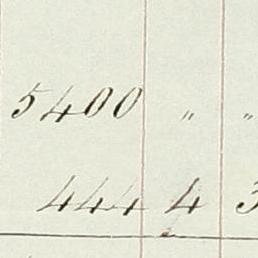 5400 " "
444 4 3